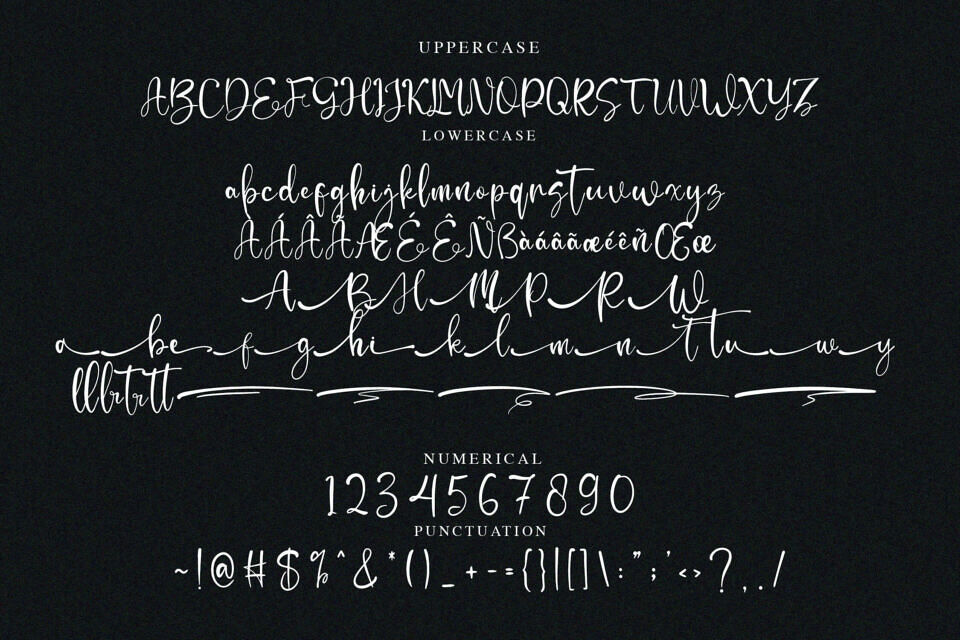 UPPERCASE
ABCDEFGHIJKLMNOPQRSTUVWXYZ
LOWERCASE
abcdefghijklmnopqrsTuvwxyz
ÀÁÂÃÆÉÊÑßàáâãæéêñŒœ
A B H M P R W
a be f g hi k l m n t tu w y
NUMERICAL
1234567890
PUNCTUATION
~!@#$%^&*()_+-={}|[]\:";'<>?,./